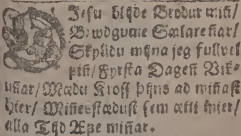 O Jesu blijde Brodur min/
Brwdgume Sælarennar/
Skylldu mijna jeg fullvel
finn/ Fyrsta Dagenn Vik-
unnar/ Mædu Kross þijns ad minnast
hier/ Minnenstædust sem ætti mier/
alla Tijd Æfe minnar.